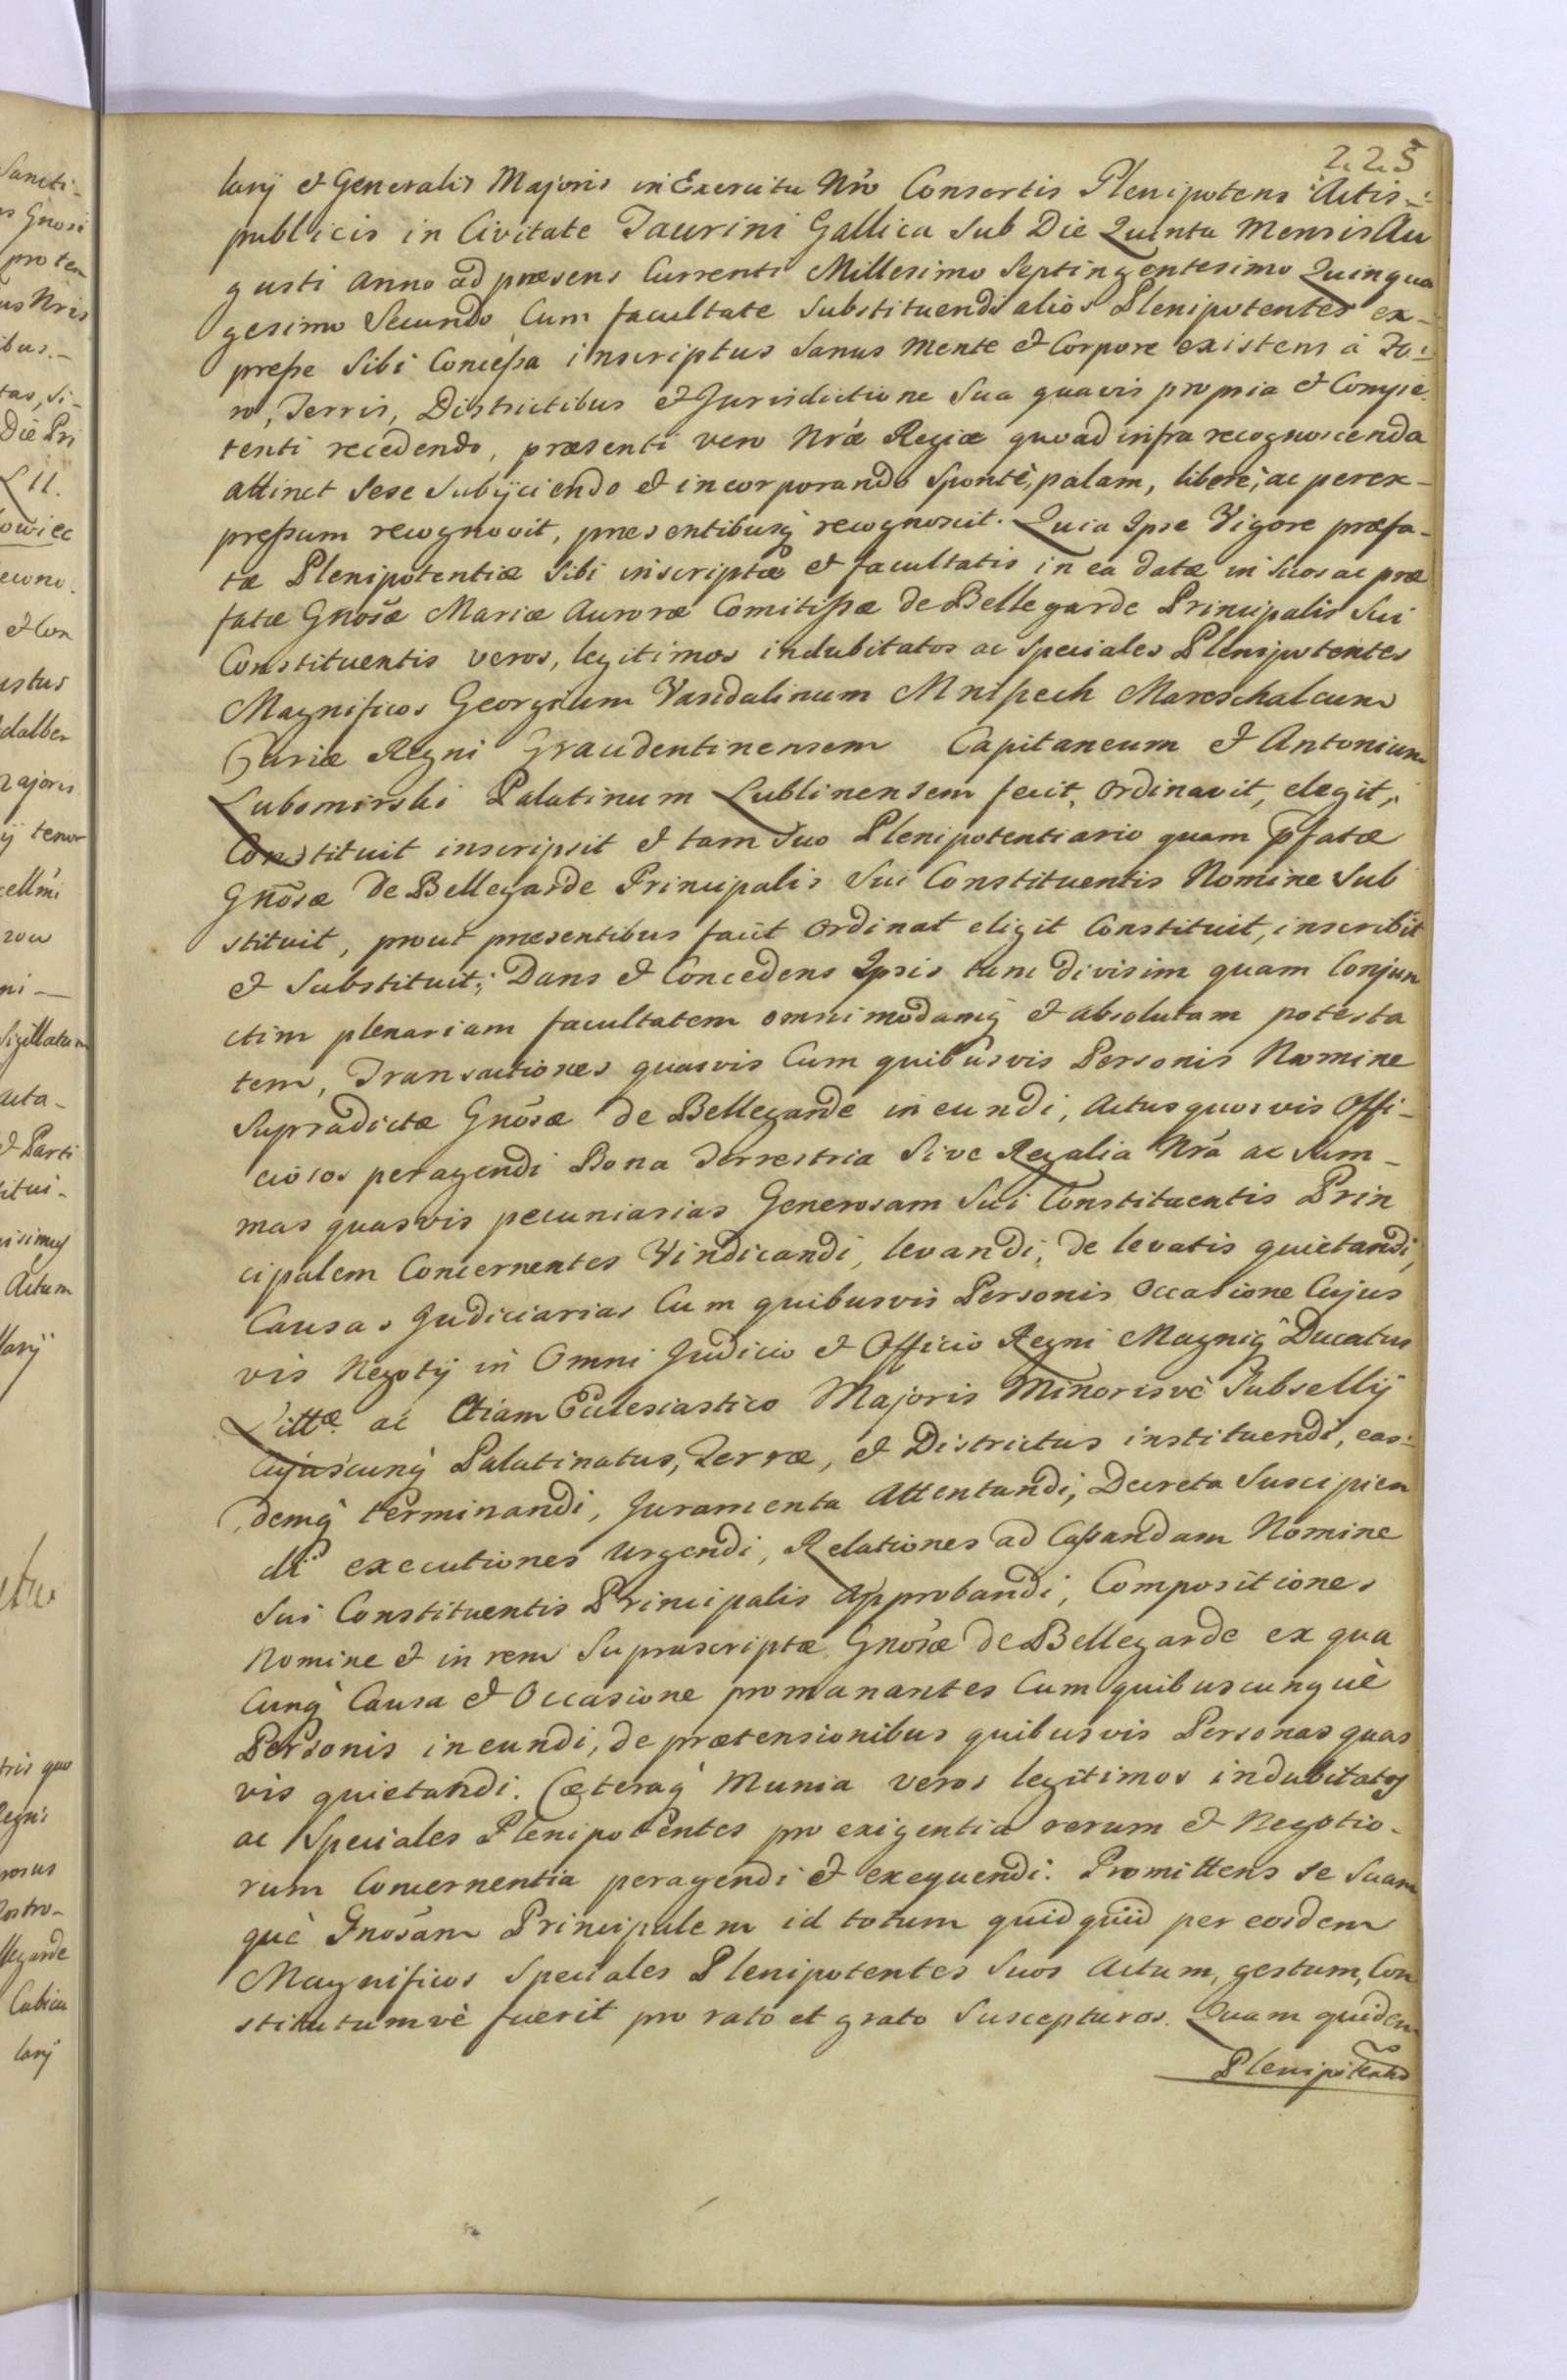 225
lary et Generalis Majoris in Exercitu Nrō Consortis Plenipotens Actis
publicis in Civitate Taurini Gallica Sub Die Quinta Mensis Au
gusti anno ad præsens Currenti Millesimo Septingentesimo Quinqua
gesimo Secundo Cum facultate Substituendi alios Plenipotentes ex-
preße Sibi Conceßa inscriptus Sanus mente et Corpore existens à Fo-
ro, Terris, Districtibus et Jurisdictione Sua quavis propria et Compe-
tenti recedendo, præsenti vero Nrǽ Regiæ quoad infra recognoscenda
attinet Sese Subijciendo et incorporando Spontè, palam, liberè, ac perex-
preßum recognovit, præsentibusq̀ recognoscit. Quia Ipse Vigore præfa-
tæ Plenipotentiæ Sibi inscriptæ et facultatis in ea datæ in Suos ac præ
fatæ Gnosæ Mariæ Auroræ Comitißæ de Bellegarde Principalis Sui
Constituentis veros, legitimos indubitatos ac Speciales Plenipotentes
Magnificos Georgium Vandalinum Mniszech Mareschalcum
Curiæ Regni Graudentinensem Capitaneum et Antonium
Lubomirski Palatinum Lublinensem fecit, Ordinavit, elegit,
Constituit inscripsit et tam Suo Plenipotentiario quam p̄fatæ
Gnōsæ de Bellegarde Principalis Sui Constituentis Nomine Sub
stituit, prout præsentibus facit Ordinat eligit Constituit, inscribit
et Substituit; Dans et Concedens Ipsis tam divisim quam Conjun
ctim plenariam facultatem omnimodamq̀ et absolutam potesta
tem, Transactiones quasvis Cum quibusvis Personis Nomine
Supradictæ Gnōsæ de Bellegarde ineundi, Actus quosvis Offi-
ciosos peragendi Bona Terrestria Sive Regalia Nrā ac Sum-
mas quasvis pecuniarias Generosam Sui Constituentis Prin
cipalem Concernentes Vindicandi, levandi, de levatis quietandi,
Causas Judiciarias Cum quibusvis Personis Occasione Cujus
vis Negotij in Omni Judicio et Officio Regni Magniq̀ Ducatus
Littæ ac Etiam Ecclesiastico Majoris Minorisvè Subsellij
Cujuscunq̀ Palatinatus, Terræ, et Districtus instituendi, eas-
demq̀ terminandi, Juramenta Attentandi, Decreta Suscipien
di executiones urgendi, Relationes ad Caßandam Nomine
Sui Constituentis Principalis Approbandi, Compositiones
Nomine et in rem Suprascriptæ Gnosæ de Bellegarde ex qua
Cunq̀ Causa et Occasione promanantes Cum quibuscunquè
Personis ineundi, de prætensionibus quibusvis Personas quas
vis quietandi. Cæteraq̀ Munia veros legitimos indubitatos
ac Speciales Plenipotentes pro exigentia rerum et Negotio-
rum Concernentia peragendi et exequendi. Promittens se Suam
què Gnosam Principalem id totum quidquid per eosdem
Magnificos Speciales Plenipotentes Suos Actum, gestum, Con
stitutumvè fuerit pro rato et grato Suscepturos. Quam quidem